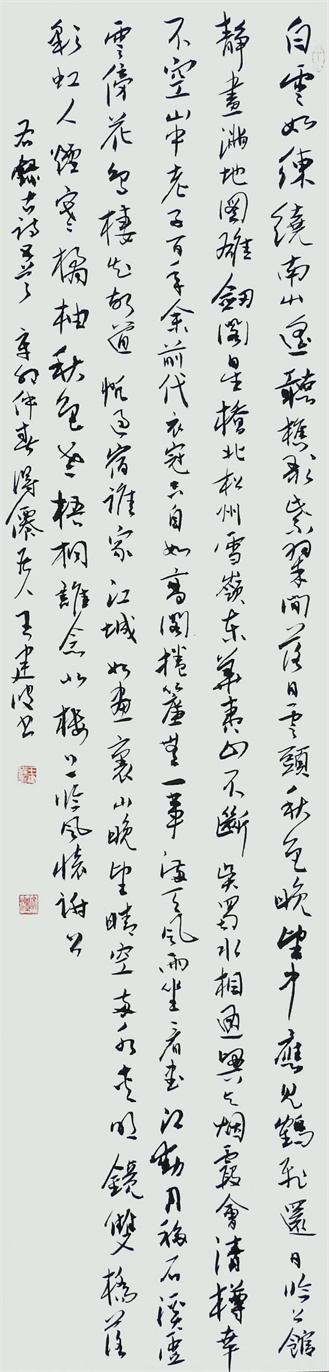 白雲如練繞南山遙聽樵歌紫翠間落日雲頭秋色晚望中應見鶴飛還日臨公館
靜畫滿地圖雄劍閣星橋北松州雪嶺東華夷山不斷吳蜀水相通興與烟霞會清樽幸
不空山中老子百年余前代衣冠亦自如高閣捲簾望一滿天風雨坐看書江動月移石溪虛
雲傍花鳥棲知故道帆過宿誰家江城如畫裏山晚望晴空兩水夾明鏡雙橋落
彩虹人煙寒橘柚秋色老梧桐誰念北樓上臨風懷謝公
右錄古詩五首辛卯仲春得居人王建波書